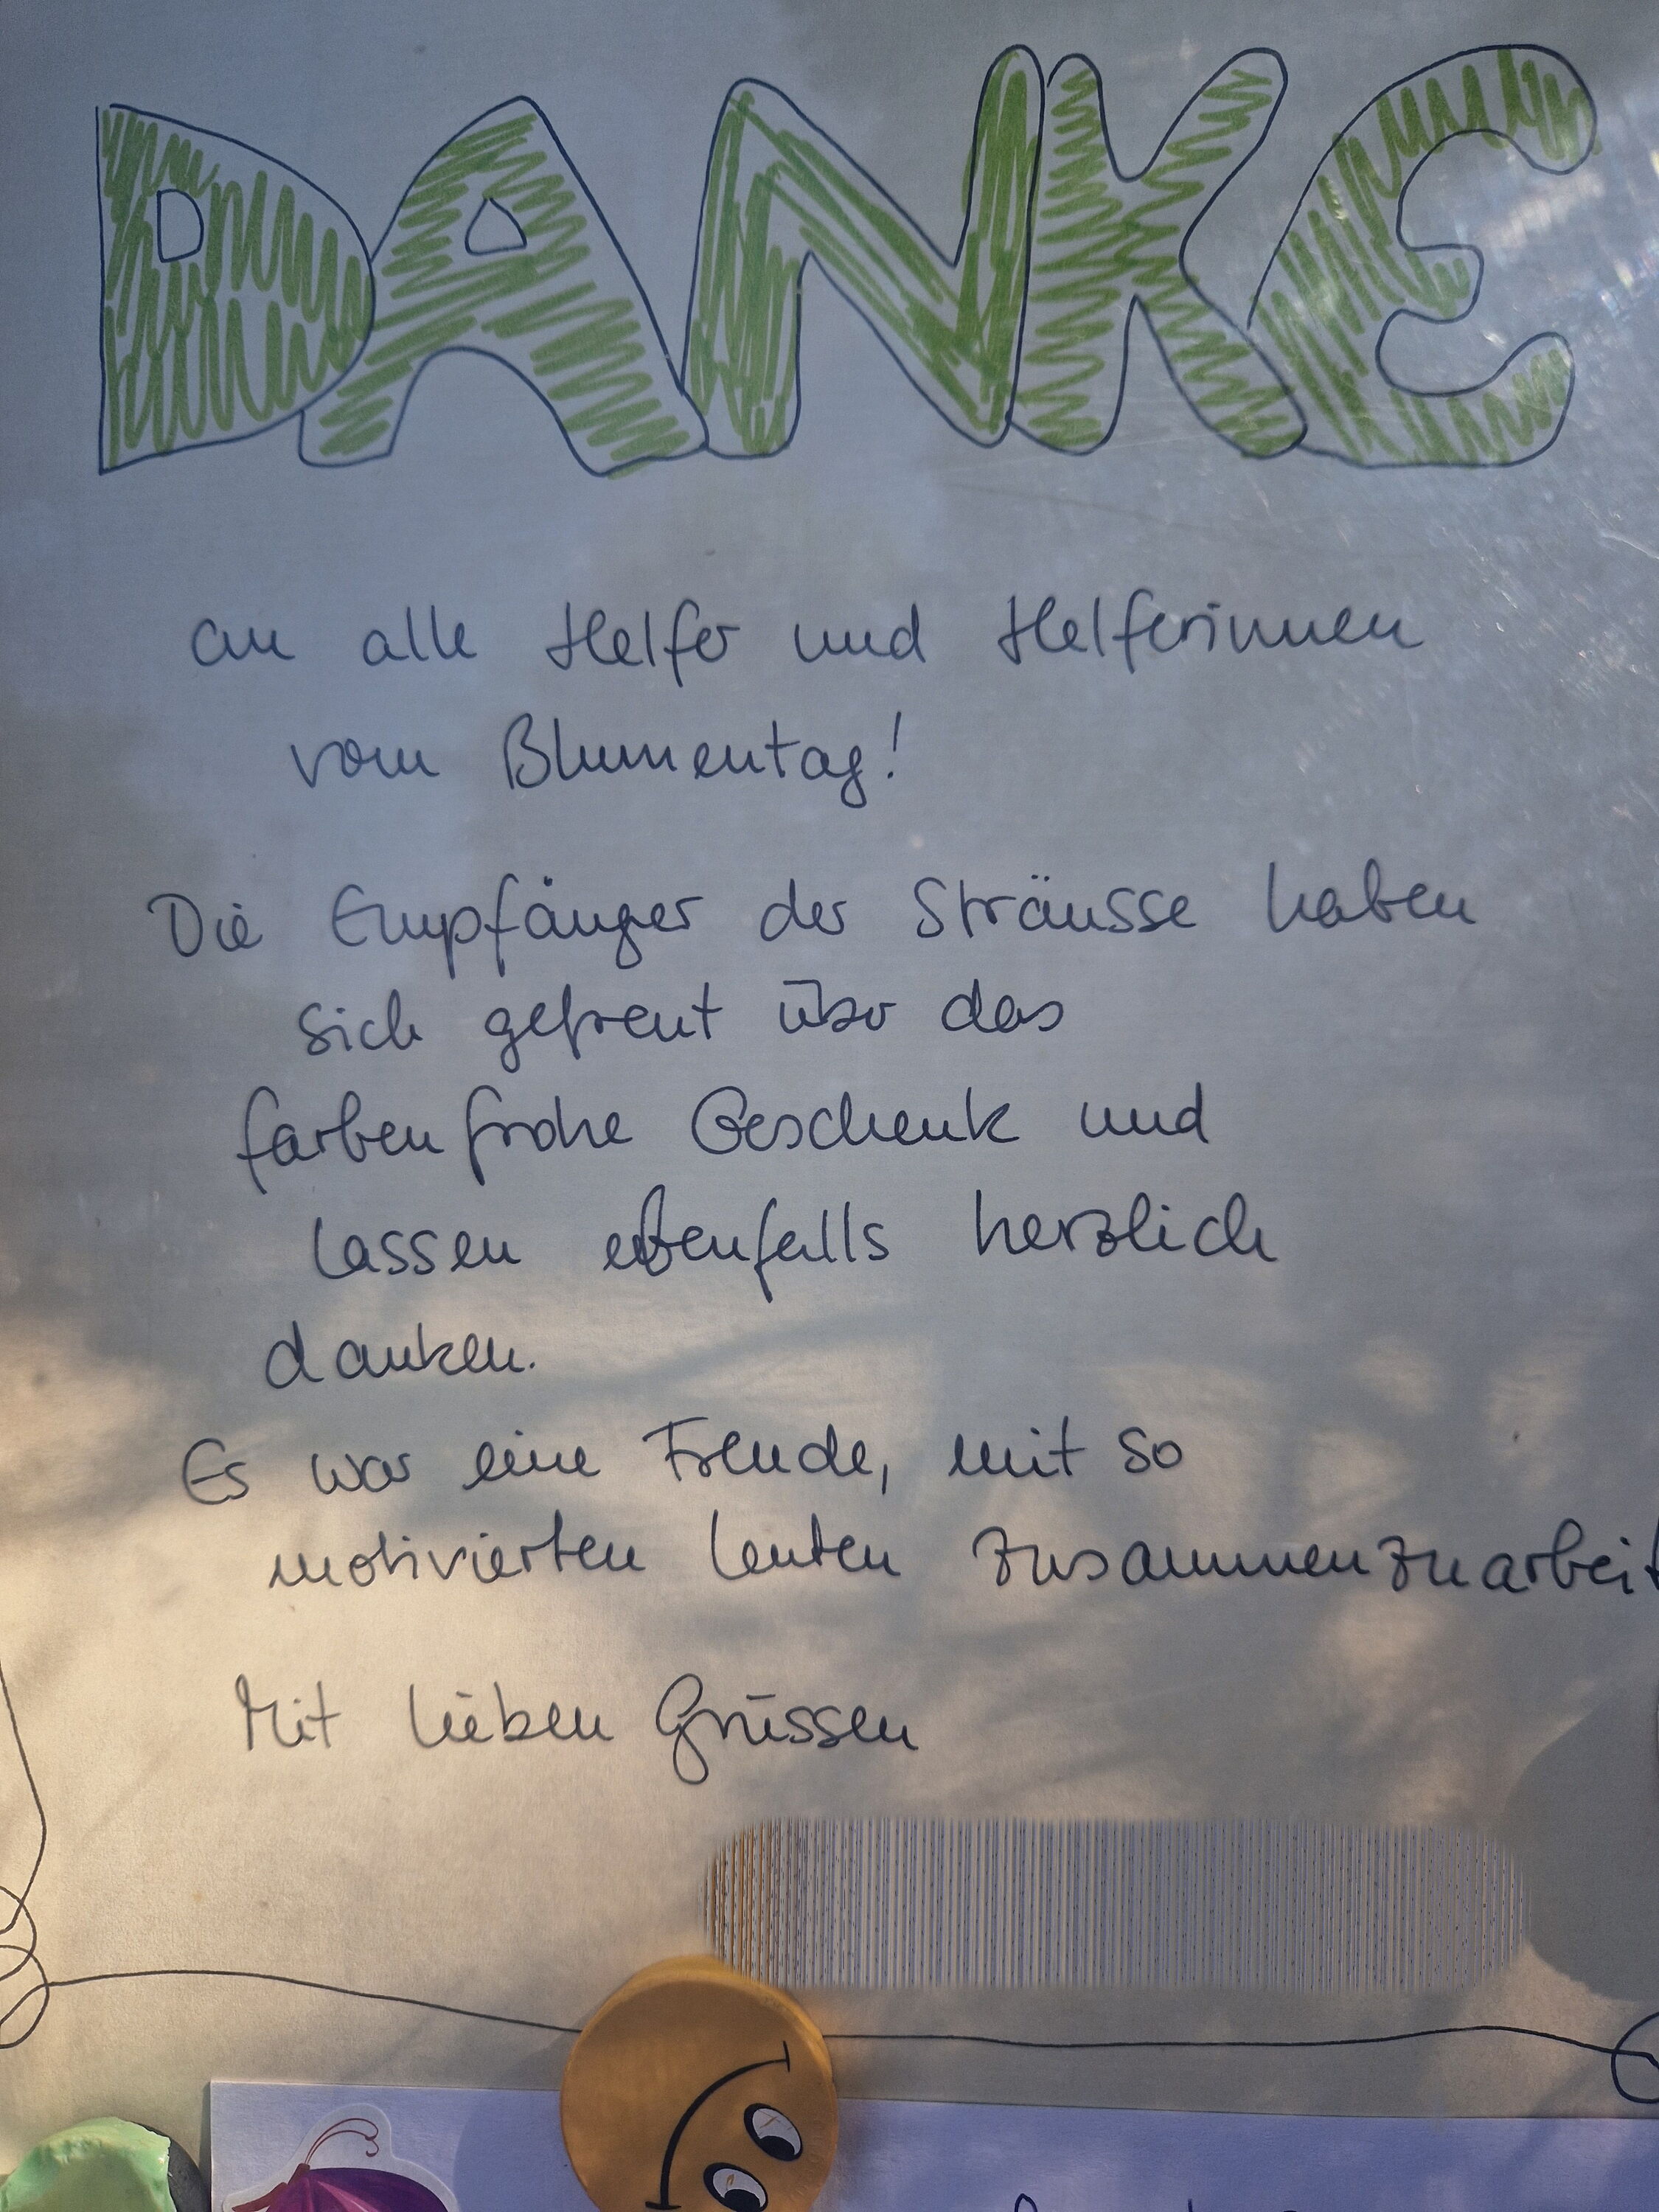 DANKE
an alle Helfer und Helferinnen
vom Blumentag!
Die Empfänger der Sträusse haben
sich gefreut über das
farbenfrohe Geschenk und
lassen ebenfalls herzlich
danken.
Es war eine Freude, mit so
motivierten Leuten zusammenzuarbeit
Mit lieben Grüssen